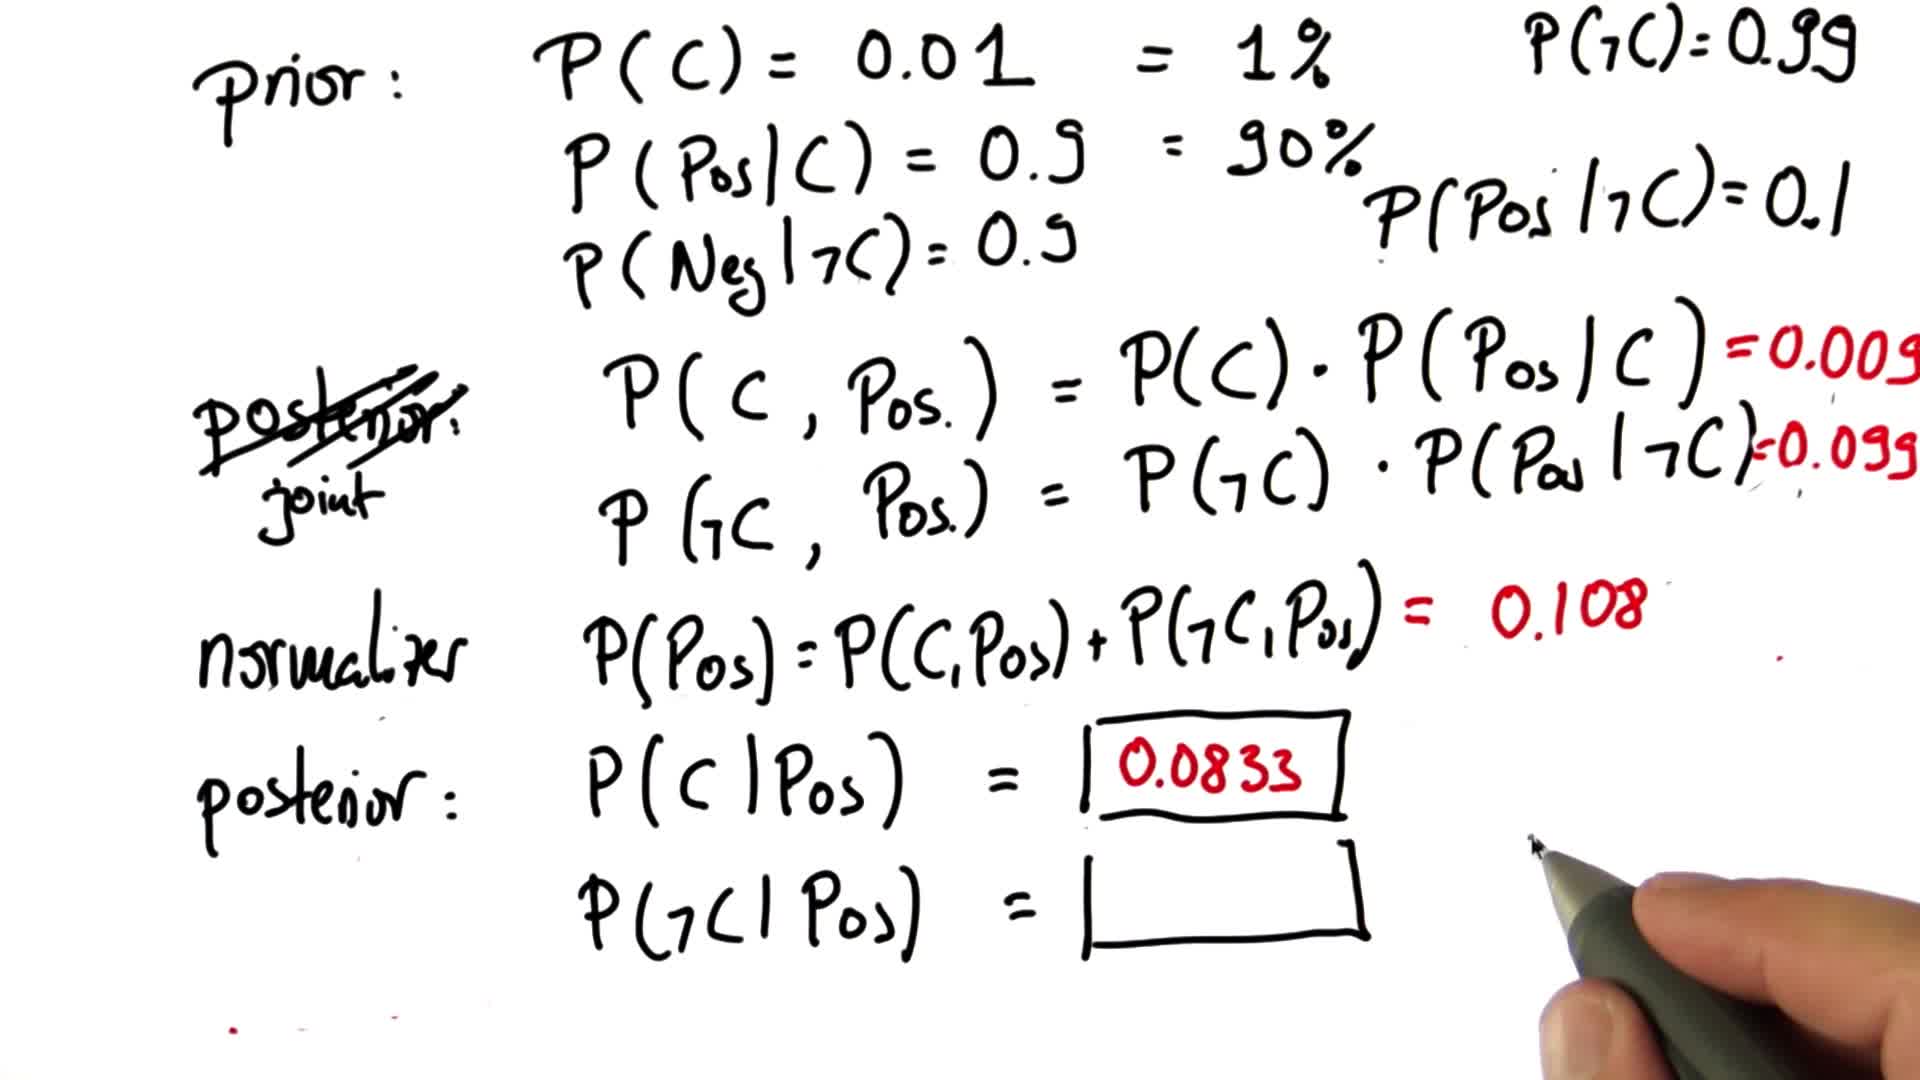 prior: P(C) = 0.01 = 1% P(¬C) = 0.99
P(Pos|C) = 0.9 = 90%
P(Pos|¬C) = 0.1
P(Neg|¬C) = 0.9
posterior: P(C, Pos.) = P(C) · P(Pos|C) = 0.009
joint P(¬C, Pos.) = P(¬C) · P(Pos|¬C) = 0.099
normalizer P(Pos) = P(C,Pos) + P(¬C,Pos) = 0.108
posterior: P(C|Pos) = 0.0833
P(¬C|Pos) =